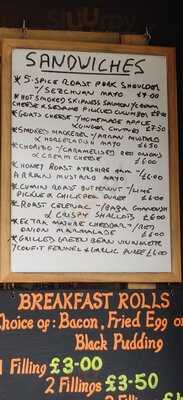 SANDWICHES
* 5-SPICE ROAST PORK SHOULDER
W/ SEZCHUAN MAYO £7.00
* HOT SMOKED SKIPNESS SALMON / CREAM
CHEESE & SESAME PICKLED CUCUMBER £9.00
* GOATS CHEESE / HOMEMADE APPLE
& GINGER CHUTNEY £7.50
* SMOKED MACKEREL / ARRAN MUSTARD
& HORSERADISH MAYO £6.50
* CHORIZO / CARAMELISED RED ONIONS
& CREAM CHEESE £6.00
* HONEY ROAST AYRSHIRE HAM W/
ARRAN MUSTARD MAYO £6.00
* CUMIN ROAST BUTTERNUT / LIME
PICKLE & CHICKPEA PUREE £6.00
* ROAST CELERIAC / BABA GANNOUSH
& CRISPY SHALLOTS £6.00
* EXTRA MATURE CHEDDAR / RED
ONION MARMALADE £6.00
* GRILLED GREEN BEAN VINAIGRETTE
/ CONFIT FENNEL & GARLIC PUREE £6.00
BREAKFAST ROLLS
Choice of: Bacon, Fried Egg or
Black Pudding
1 Filling £3-00
2 Fillings £3-50